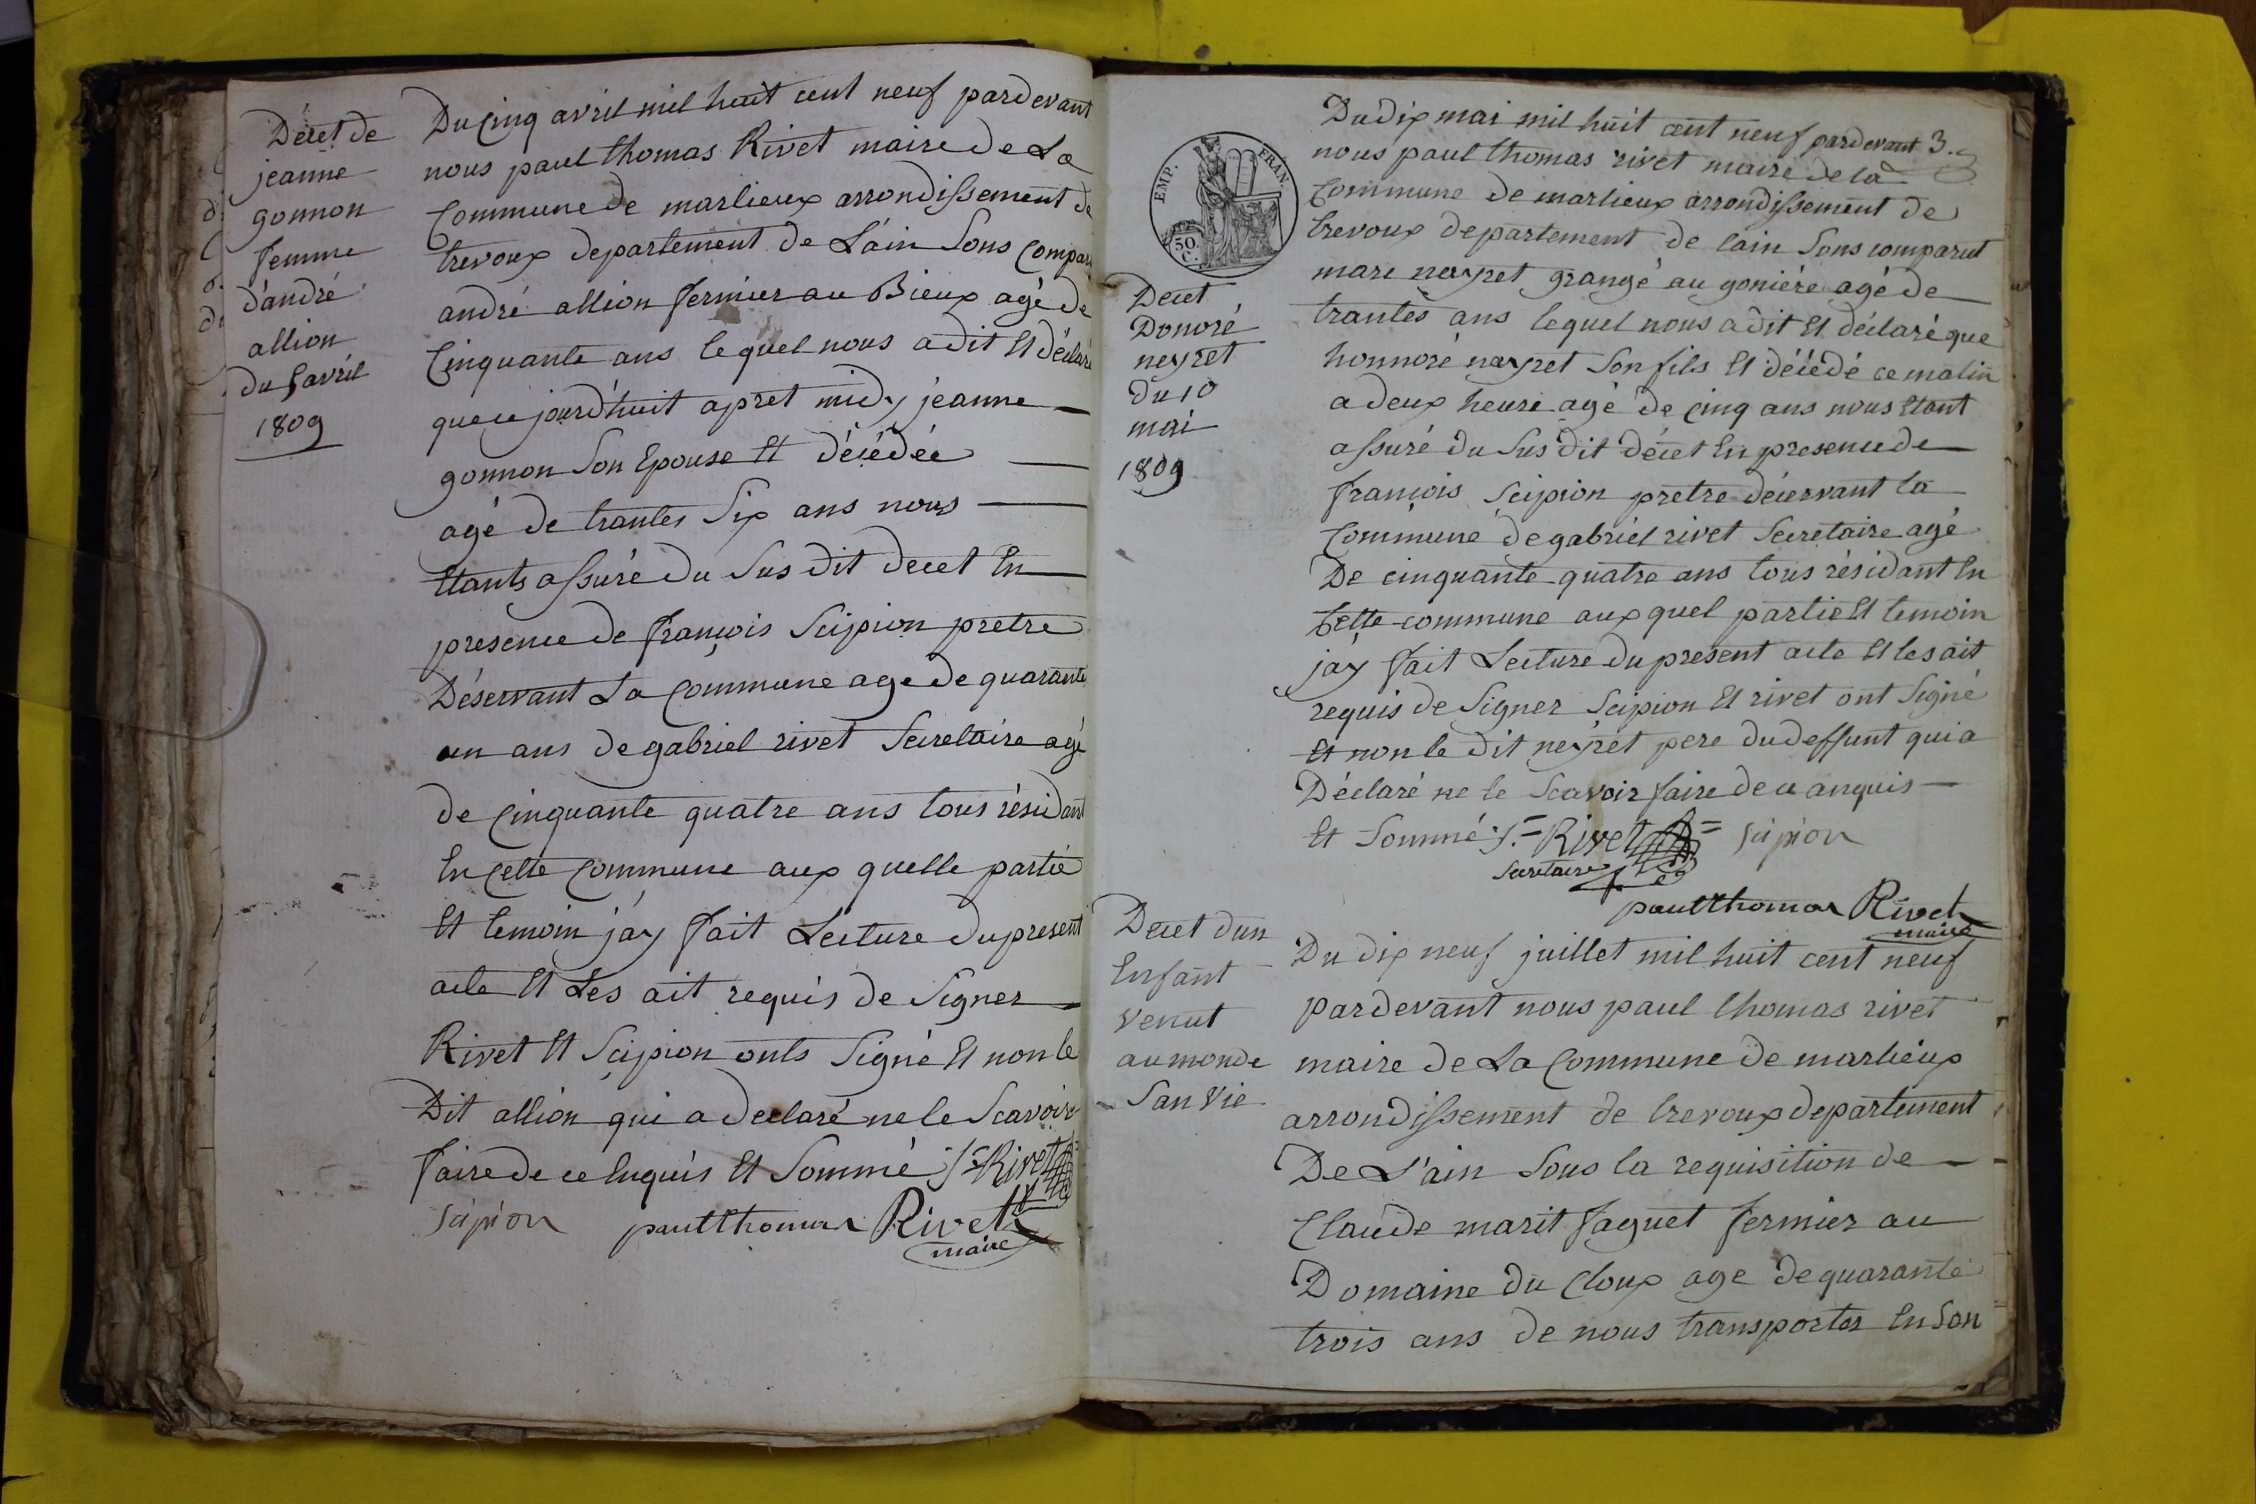 Décet de
jeanne
gonnon
femme
d'andré
allion
du 5 avril
1809
Du Cinq avril mil huit cent neuf pardevant
nous paul thomas Rivet maire de La
Commune de marlieux arrondissement de
trevoux departement de L'ain Sons Compar
andré allion fermier au Bieux agé de
Cinquante ans lequel nous a dit Et déclaré
que ce jourd'huit apret midy jeanne
gonnon Son Epouse Et décédée
agé de trantes Six ans nous
Etants assuré du Sus dit decet En
presence de françois Scipion pretre
Déservant La Commune age de quarante
un ans de gabriel rivet Secretaire agé
de Cinquante quatre ans tous résidant
En Cette Commune aux quelle partie
Et temoin j'ay fait Lecture du present
acte Et Les ait requis de Signer
Rivet Et Scipion onts Signé Et non le
Dit allion qui a declaré ne le Scavoire
faire de ce Enquis Et Sommé Rivet
Scipion paul thomas Rivet
maire
EMP. FRAN.
50. C.
3.
Decet
Donoré
neyret
Du 10
mai
1809
Du dix mai mil huit cent neuf pardevant
nous paul thomas rivet maire de la
Commune de marlieux arrondissement de
trevoux departement de l'ain Sons comparut
marc neyret grangé au goniére agé de
trantes ans lequel nous a dit Et déclaré que
honnoré neyret Son fils Et décédé ce matin
a deux heure agé de Cinq ans nous Etant
assuré du Sus dit décet En presence de
françois Scipion pretre décervant la
Commune de gabriel rivet Secretaire agé
De cinquante quatre ans tous résidant En
Cette commune aux quel partie Et temoin
j'ay fait Lecture du present acte Et les ait
requis de Signer Scipion Et rivet ont Signé
Et non le dit neyret pere du deffunt qui a
Déclaré ne le Scavoir faire de ce anquis
Et Sommé Rivet Scipion
Secretaire
paul thomas Rivet
maire
Decet d'un
Enfant
venut
au monde
San Vie
Du dix neuf juillet mil huit cent neuf
pardevant nous paul thomas rivet
maire de La Commune de marlieux
arrondissement de trevoux departement
De L'ain Sous la requisition de
Claude marit faguet fermier au
Domaine du Cloux age de quarante
trois ans de nous transporter En Son